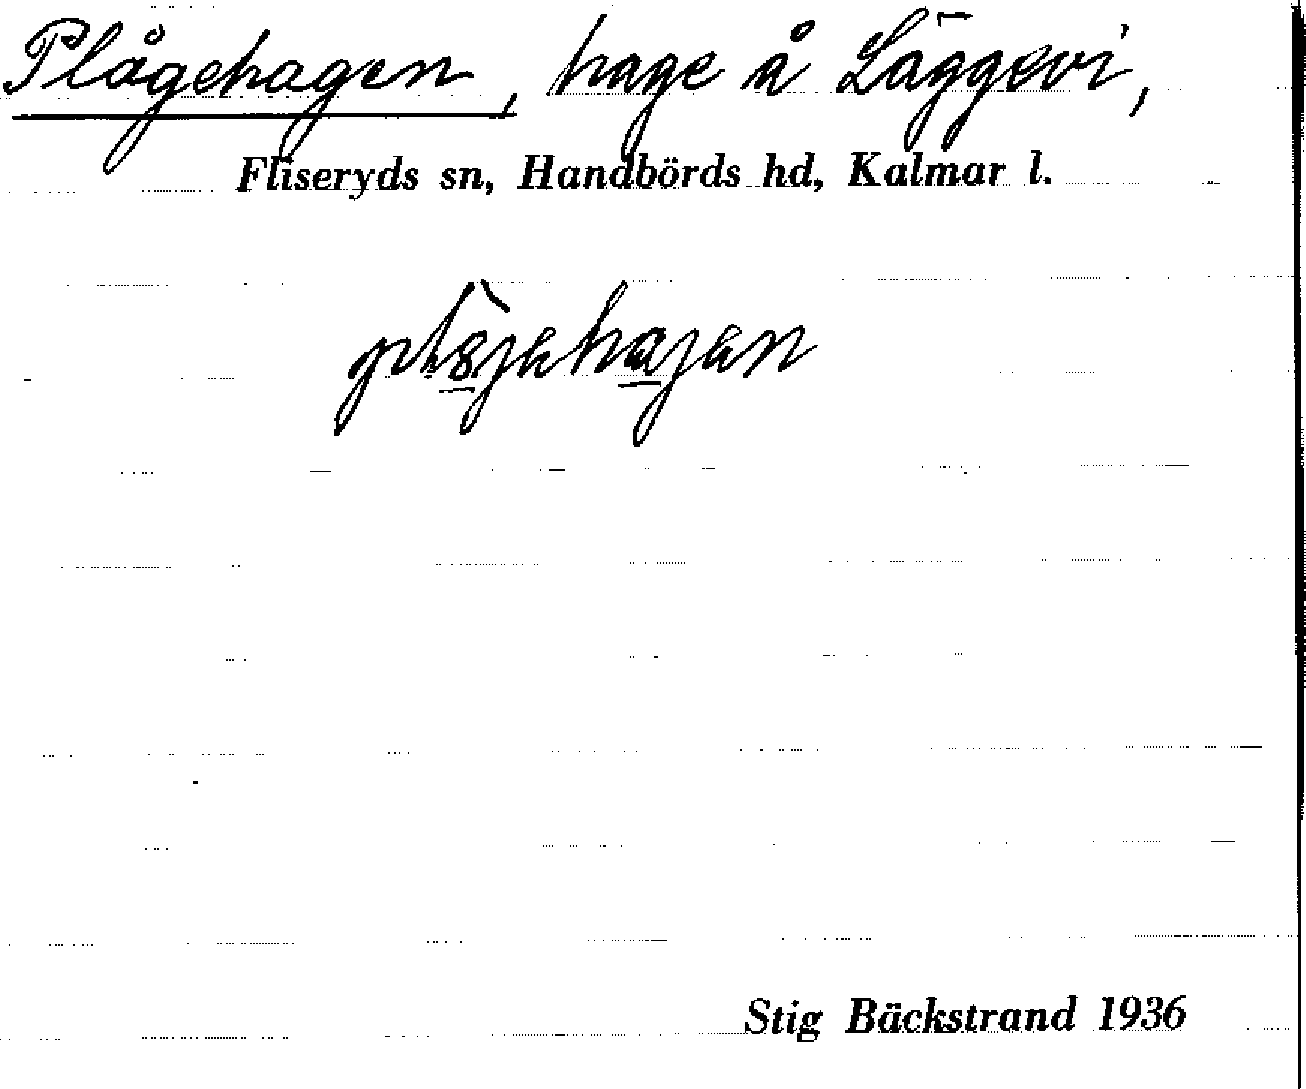 Plågehagen, hage å Läggevi,
Fliseryds sn, Handbörds hd, Kalmar l.
Stig Bäckstrand 1936